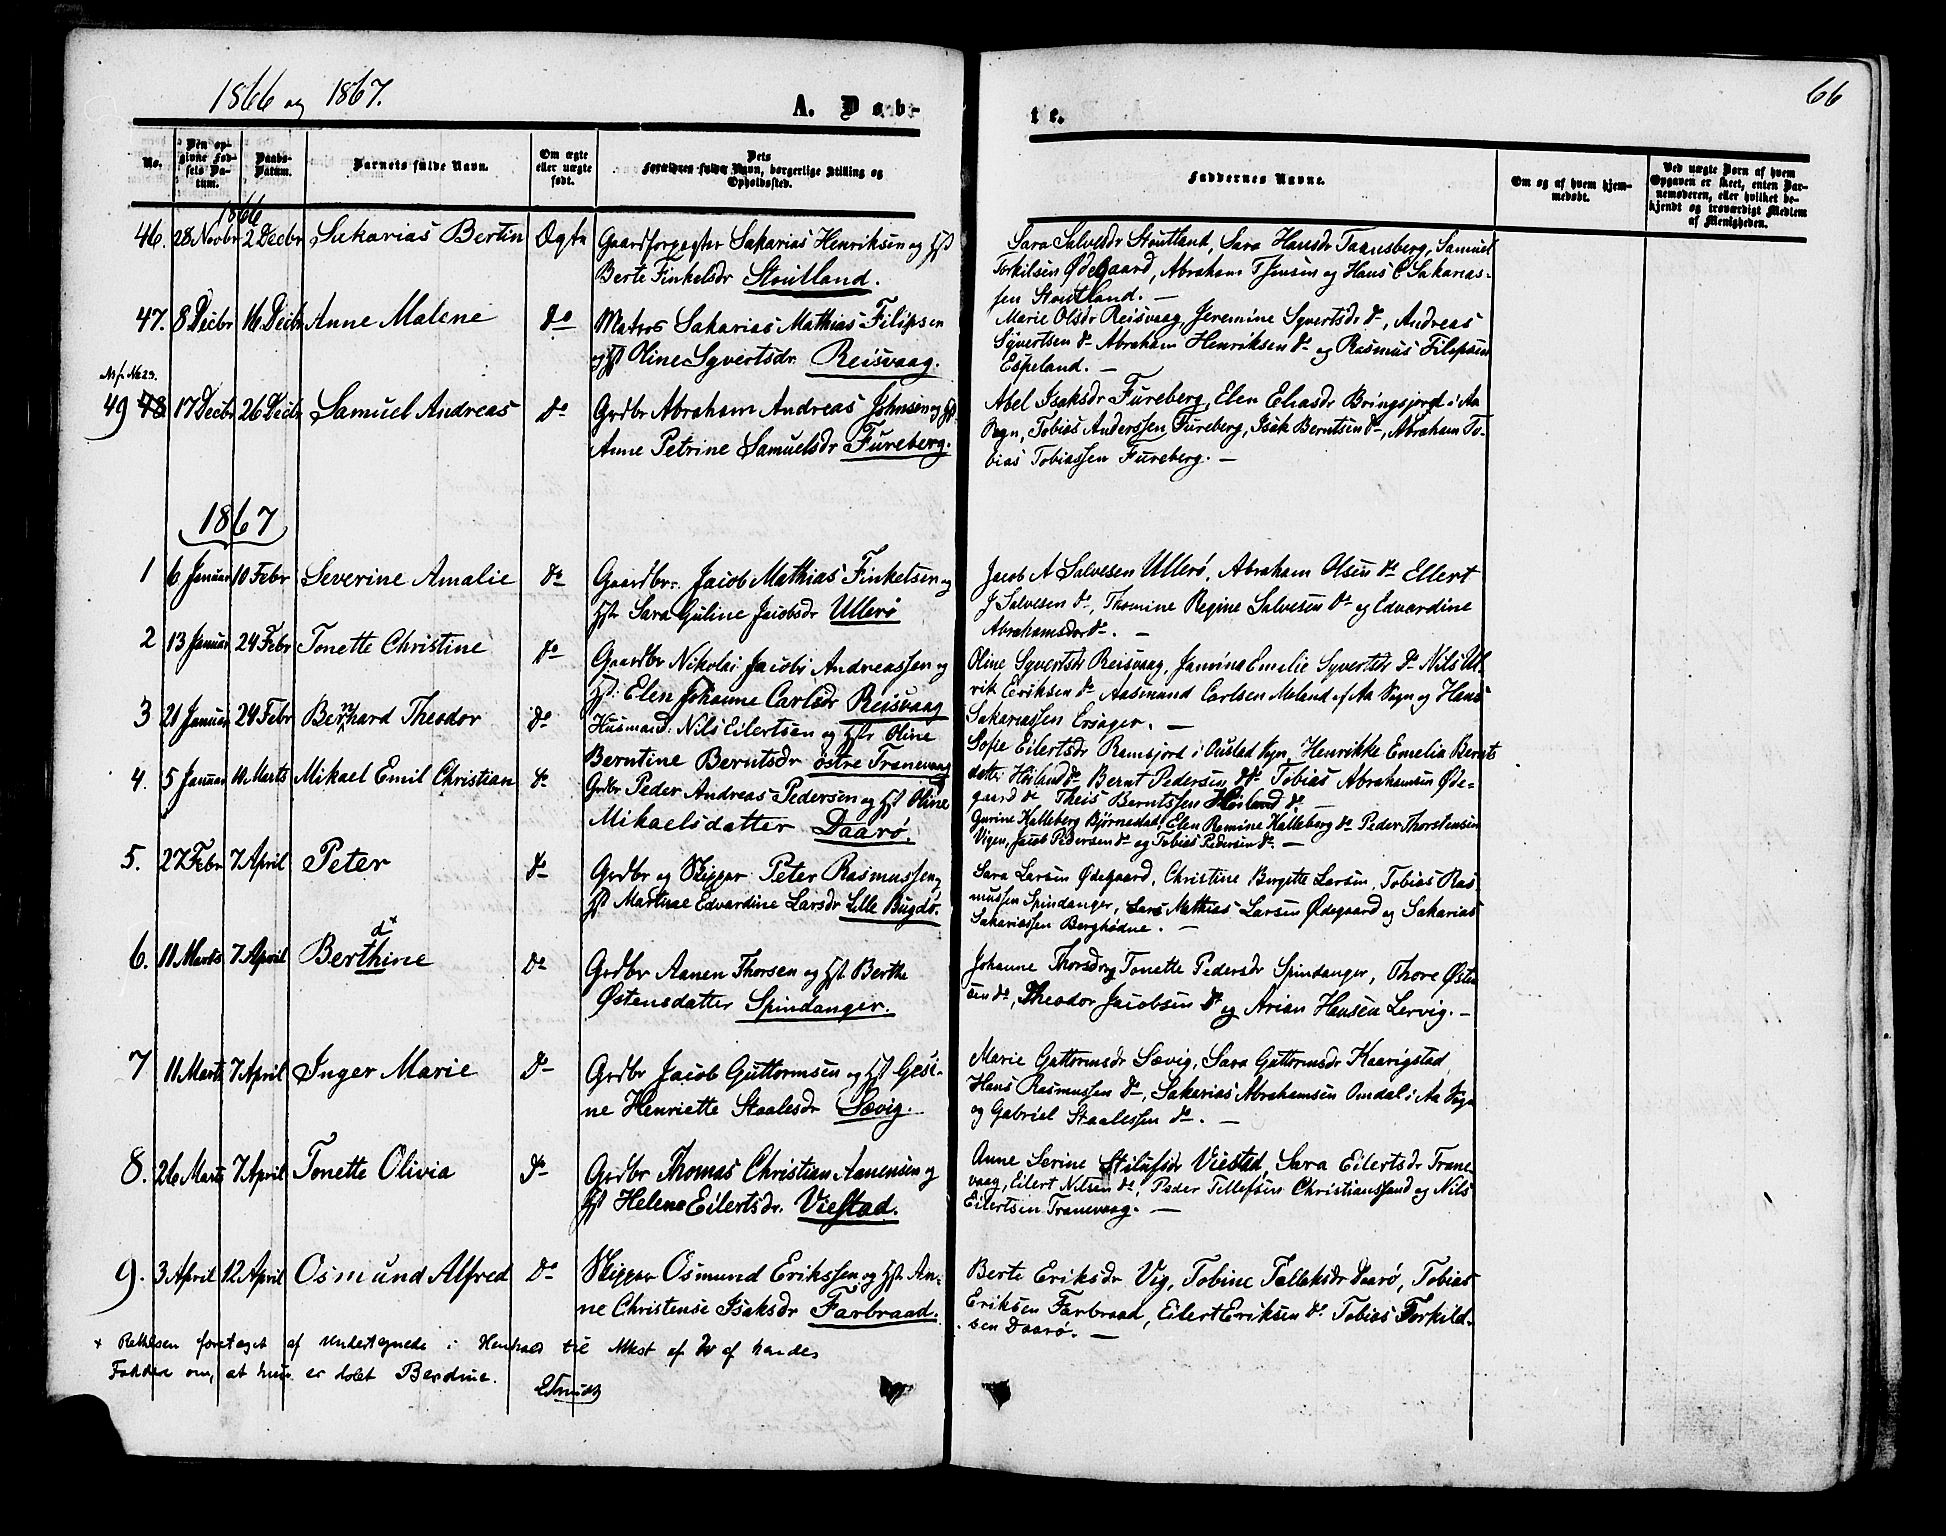 1866 og 1867.
A. Døb-
te.
66
No.
Den opgivne Fødsels Datum.
Daabs-Datum.
Barnets fulde Navn.
Om ægte eller uægte født.
Dets Forældres fulde Navn, borgerlige Stilling og Opholdssted.
Faddernes Navne.
Om og af hvem hjemmedøbt.
Ved uægte Børn af hvem Opgaven er skeet, enten Barnemoderen, eller hvilket bekjendt og troværdigt Medlem af Menigheden.
1866
46. 28 Novbr 2 Decbr Sakarias Bertin Ægte Gaardforpagter Sakarias Henriksen og Hst
Berte Finkelsdr Stoutland.
Sara Salvesdr Stoutland, Sara Hansdr Taansberg, Samuel
Torkilsen Ødegaard, Abraham T Jensen og Hans C Sakarias-
sen Stoutland. —
47. 8 Decbr 16 Decbr Anne Malene Do Matros Sakarias Mathias Filipsen
og Hst Oline Syvertsdr. Reisvaag.
Marie Olsdr Reisvaag, Jeremine Syvertsdr Do, Andreas
Syvertsen Do Abraham Henriksen Do og Rasmus Filipsen
Espeland. —
49 48 17 Decbr 26 Decbr Samuel Andreas Do Grdbr Abraham Andreas Johnsen og Hst
Anne Petrine Samuelsdr Fureberg.
Abel Isaksdr Fureberg, Elen Eliasdr Bringsjord i Aa
Sogn, Tobias Anderssen Fureberg, Isak Berntsen Do, Abraham To-
bias Tobiassen Fureberg. —
1867
1 6 Januar 10 Febr Severine Amalie Do Gaardbr. Jacob Mathias Finkelsen og
Hst Sara Guline Jacobsdr Ullerø
Jacob A Salvesen Ullerø, Abraham Olsen Do Ellert
J Salvesen Do, Thomine Regine Salvesen Do og Edvardine
Abrahamsdr Do. —
2 13 Januar 24 Febr Tonette Christine Do Gaardbr Nikolai Jacobi Andreassen og
Hst: Elen Johanne Carlsdr Reisvaag
Oline Syvertsdr Reisvaag, Janrina Emelie Syvertsdr Do Nils Ul-
rik Eriksen Do Aasmund Carlsen Meland af Aa Sogn og Hans
Sakariassen Ersager. —
3 21 Januar 24 Febr Bernhard Theodor Do Husmand: Nils Eilertsen og Hst Oline
Berntine Berntsdr østre Tranevaag
Sofie Eilertsdr Ramsjord i Ousted Sogn, Henrikke Emelia Bernts
datter Høiland Do Bernt Pedersen Do Tobias Abrahamsen Øde-
gaard Do Theis Berntssen Høiland Do. —
4. 5 Januar 10 Marts Mikael Emil Christian Do Grdbr Peder Andreas Pedersen og Hst Oline
Mikaelsdatter Daarø.
Gurine Kalleberg Bjørnestad, Elen Romine Kalleberg Do Peder Thorstensen
Vigen, Jacob Pedersen Do og Tobias Pedersen Do. —
5. 27 Febr 7 April Peter Do Grdbr og Skipper Peter Rasmussen og
Hst Martine Edvardine Larsdr Lille Bugdø.
Sara Larsen Ødegaard, Christine Bergette Larsen, Tobias Ras-
mussen Spindanger, Lars Mathias Larsen Ødegaard og Sakarias
Sakariassen Berghødne. —
d x
6. 11 Marts 7 April Berthine Do Grdbr Aanen Thorsen og Hst Berthe
Østensdatter Spindanger.
Johanne Thorsdr og Tonette Pedersdr Spindanger, Thore Østen
sen Do, Theodor Jacobsen Do og Arian Hansen Lervig. —
7 11 Marts 7 April Inger Marie Do Grdbr Jacob Guttormsen og Hst Gesi-
ne Henriette Staalesdr Sævig.
Marie Guttormsdr Sævig, Sara Guttormsdr Kaarigstad,
Hans Rasmussen Do, Sakarias Abrahamsen Omdal i Aa Sogn
og Gabriel Staalessen Do. —
8. 26 Marts 7 April Tonette Olivia Do Grdbr Thomas Christian Aanensen og
Hst Helene Eilertsdr. Viestad.
Anne Serine Stilufsdr Viestad, Sara Eilertsdr Trane-
vaag, Eilert Nilsen Do, Peder Tellefsen Christianssand og Nils
Eilertsen Tranevaag. —
9. 3 April 12 April Osmund Alfred Do Skipper Osmund Erikssen og Hst An-
ne Christense Isaksdr Farbraad.
Berte Eriksdr Vig, Tobine Tallaksdr Daarø, Tobias
Eriksen Farbraad, Eilert Eriksen Do Tobias Torkild-
sen Daarø. —
x Rettelsen foretaget af undertegnede i Henhold til Attest af to af hendes
Faddere om, at hun er døbt Berdine.